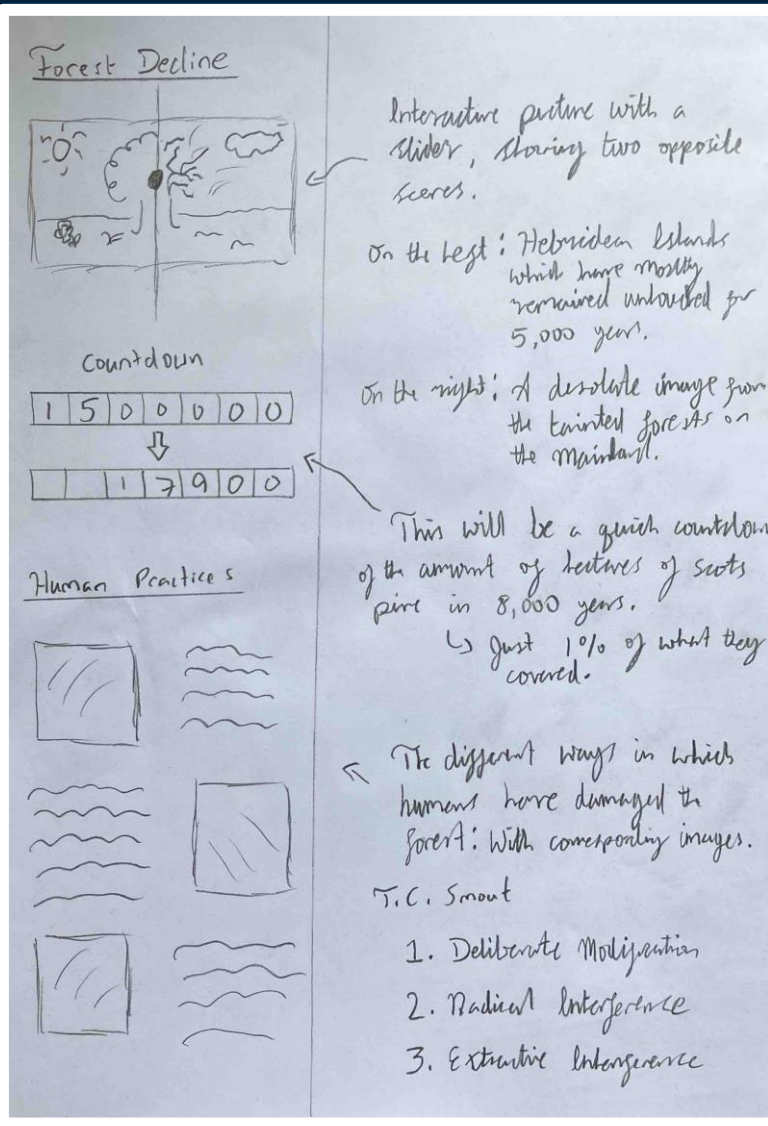 Forest Decline
Interactive picture with a
slider, showing two opposite
scenes.
On the left: Hebridean Islands
which have mostly
remained untouched for
5,000 years.
On the right: A desolate image from
the tainted forests on
the Mainland.
Countdown
1 5 0 0 0 0 0
1 7 9 0 0
This will be a quick countdown
of the amount of hectares of scots
pine in 8,000 years.
↳ Just 1% of what they
covered.
Human Practices
The different ways in which
humans have damaged the
forest: With corresponding images.
T.C. Smout
1. Deliberate Modification
2. Radical Interference
3. Extractive Interference